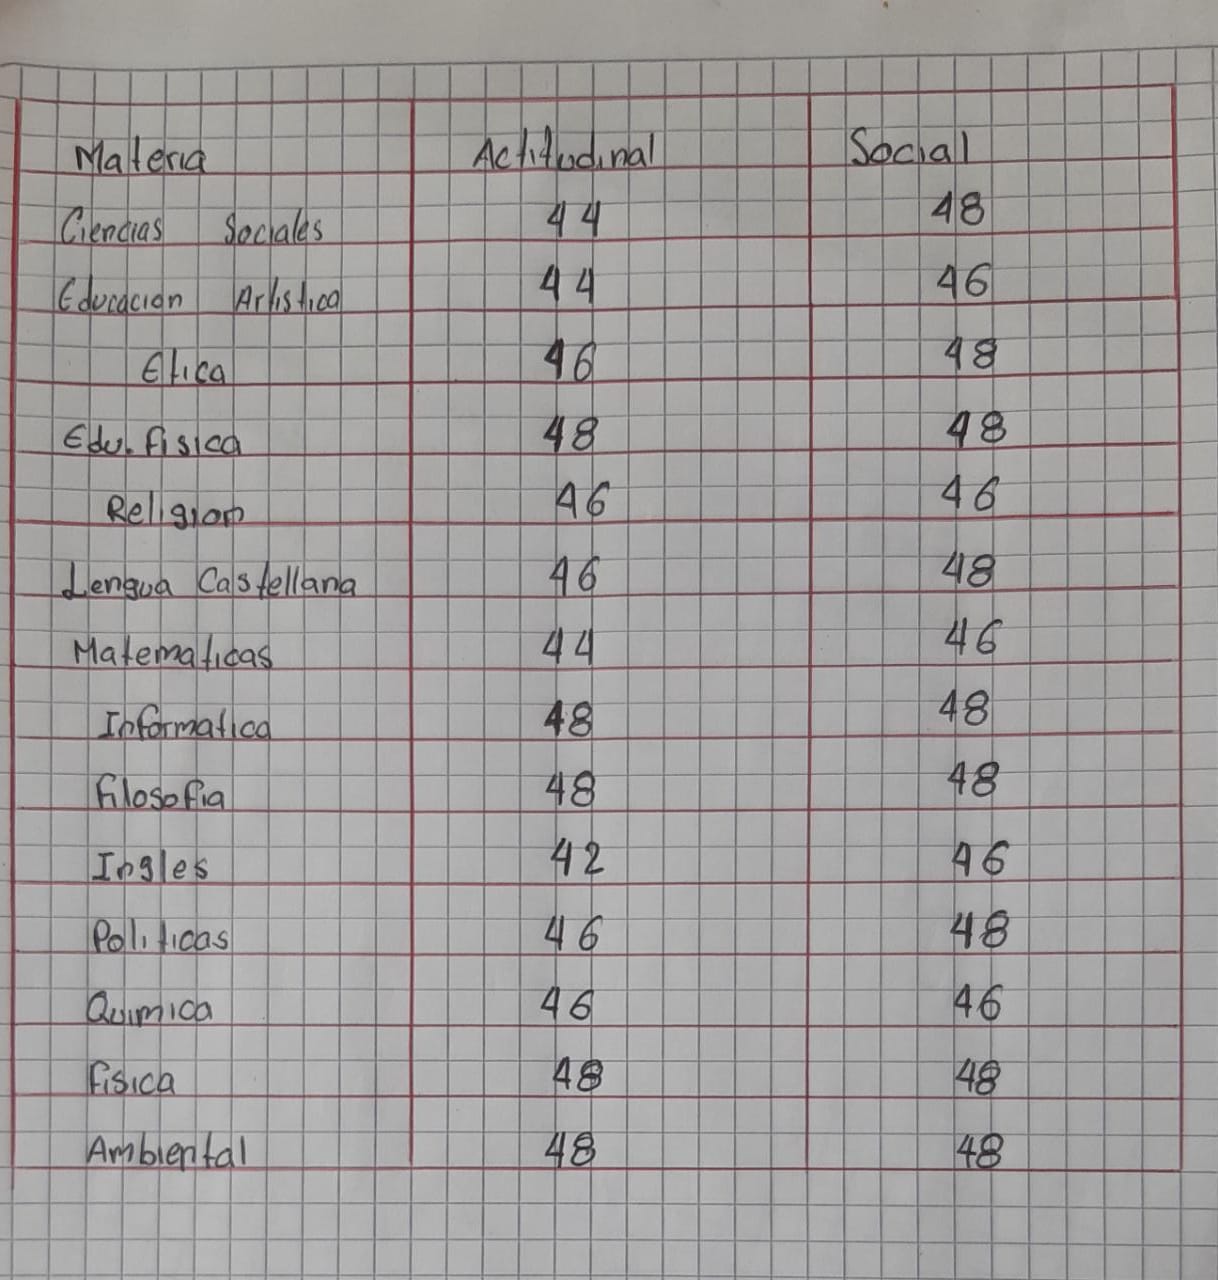 Materia Actitudinal Social
Ciencias Sociales 44 48
Educacion Artistica 44 46
Etica 46 48
Edu. fisica 48 48
Religion 46 46
Lengua Castellana 46 48
Matematicas 44 46
Informatica 48 48
filosofia 48 48
Ingles 42 46
Politicas 46 48
Quimica 46 46
fisica 48 48
Ambiental 48 48